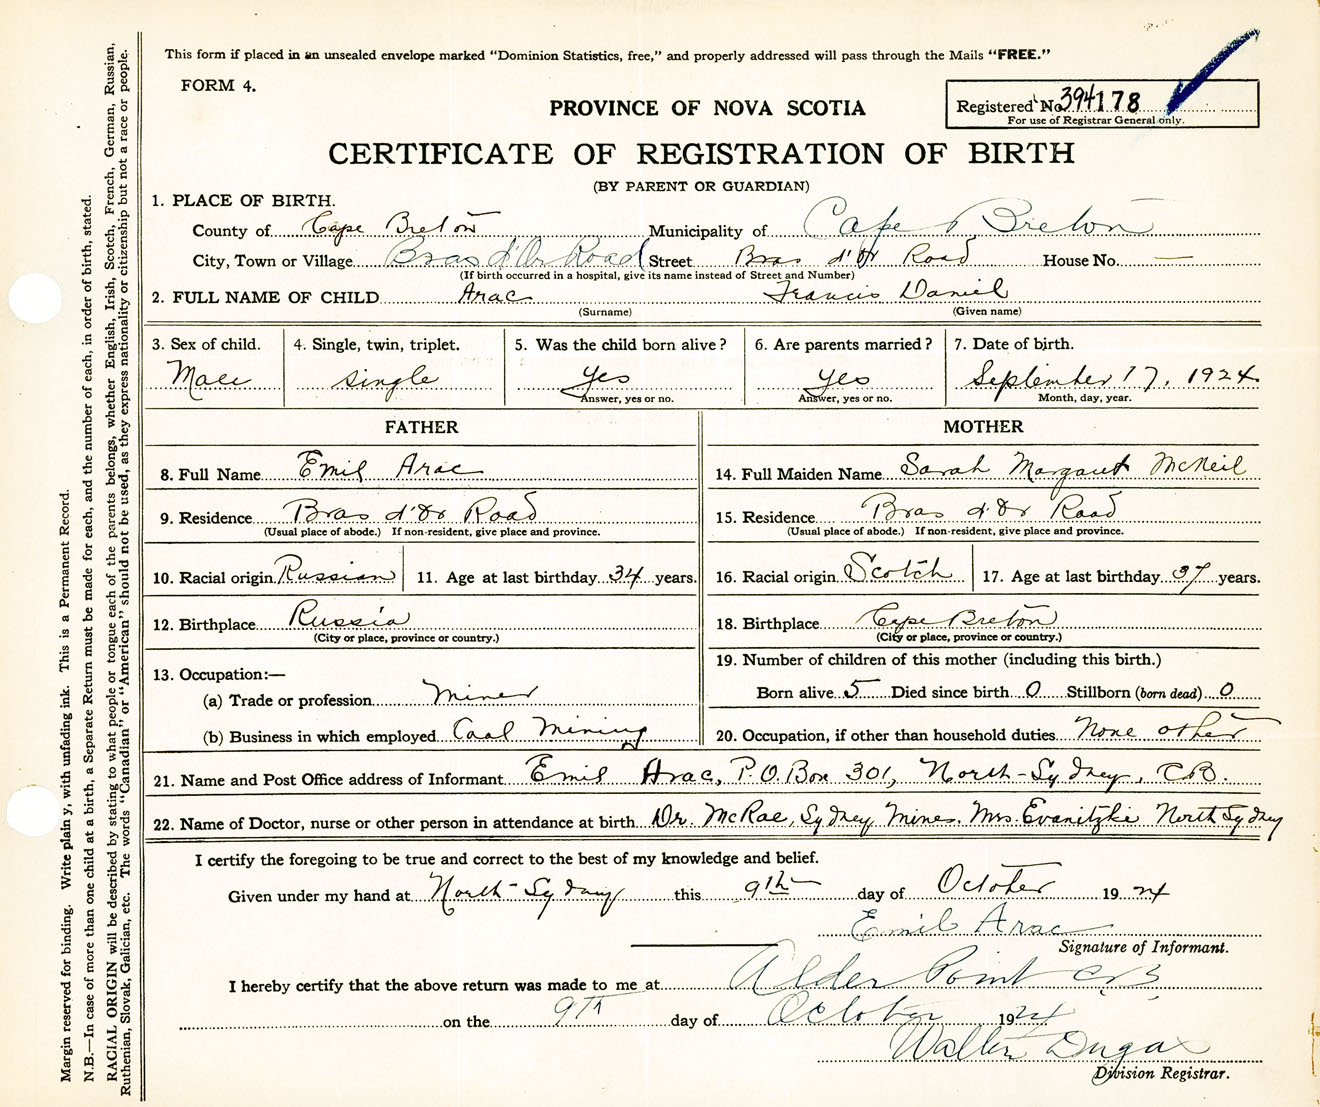 This form if placed in an unsealed envelope marked "Dominion Statistics, free," and properly addressed will pass through the Mails "FREE."
FORM 4.
Registered No. 394178
For use of Registrar General only.
PROVINCE OF NOVA SCOTIA
CERTIFICATE OF REGISTRATION OF BIRTH
(BY PARENT OR GUARDIAN)
1. PLACE OF BIRTH.
County of Cape Breton Municipality of Cape Breton
City, Town or Village Bras d'Or Road Street Bras d'Or Road House No. —
(If birth occurred in a hospital, give its name instead of Street and Number)
2. FULL NAME OF CHILD Arac Francis Daniel
(Surname) (Given name)
3. Sex of child. 4. Single, twin, triplet. 5. Was the child born alive? 6. Are parents married? 7. Date of birth.
Male single yes yes September 17, 1924
Answer, yes or no. Answer, yes or no. Month, day, year.
FATHER MOTHER
8. Full Name Emil Arac 14. Full Maiden Name Sarah Margaret McNeil
9. Residence Bras d'Or Road 15. Residence Bras d'Or Road
(Usual place of abode.) If non-resident, give place and province. (Usual place of abode.) If non-resident, give place and province.
10. Racial origin Russian 11. Age at last birthday 34 years. 16. Racial origin Scotch 17. Age at last birthday 37 years.
12. Birthplace Russia 18. Birthplace Cape Breton
(City or place, province or country.) (City or place, province or country.)
13. Occupation:— 19. Number of children of this mother (including this birth.)
(a) Trade or profession Miner Born alive 5 Died since birth 0 Stillborn (born dead) 0
(b) Business in which employed Coal Mining 20. Occupation, if other than household duties None other
21. Name and Post Office address of Informant Emil Arac, P.O. Box 301, North-Sydney, C.B.
22. Name of Doctor, nurse or other person in attendance at birth Dr. McRae, Sydney Mines. Mrs. Evanitzkie North Sydney
I certify the foregoing to be true and correct to the best of my knowledge and belief.
Given under my hand at North-Sydney this 9th day of October 1924
Emil Arac
Signature of Informant.
I hereby certify that the above return was made to me at Alder Point C.B.
on the 9th day of October 1924
Walter Dugas
Division Registrar.
Margin reserved for binding. Write plain y, with unfading ink. This is a Permanent Record.
N.B.—In case of more than one child at a birth, a Separate Return must be made for each, and the number of each, in order of birth, stated.
RACIAL ORIGIN will be described by stating to what people or tongue each of the parents belongs, whether English, Irish, Scotch, French, German, Russian,
Ruthenian, Slovak, Galician, etc. The words "Canadian" or "American" should not be used, as they express nationality or citizenship but not a race or people.